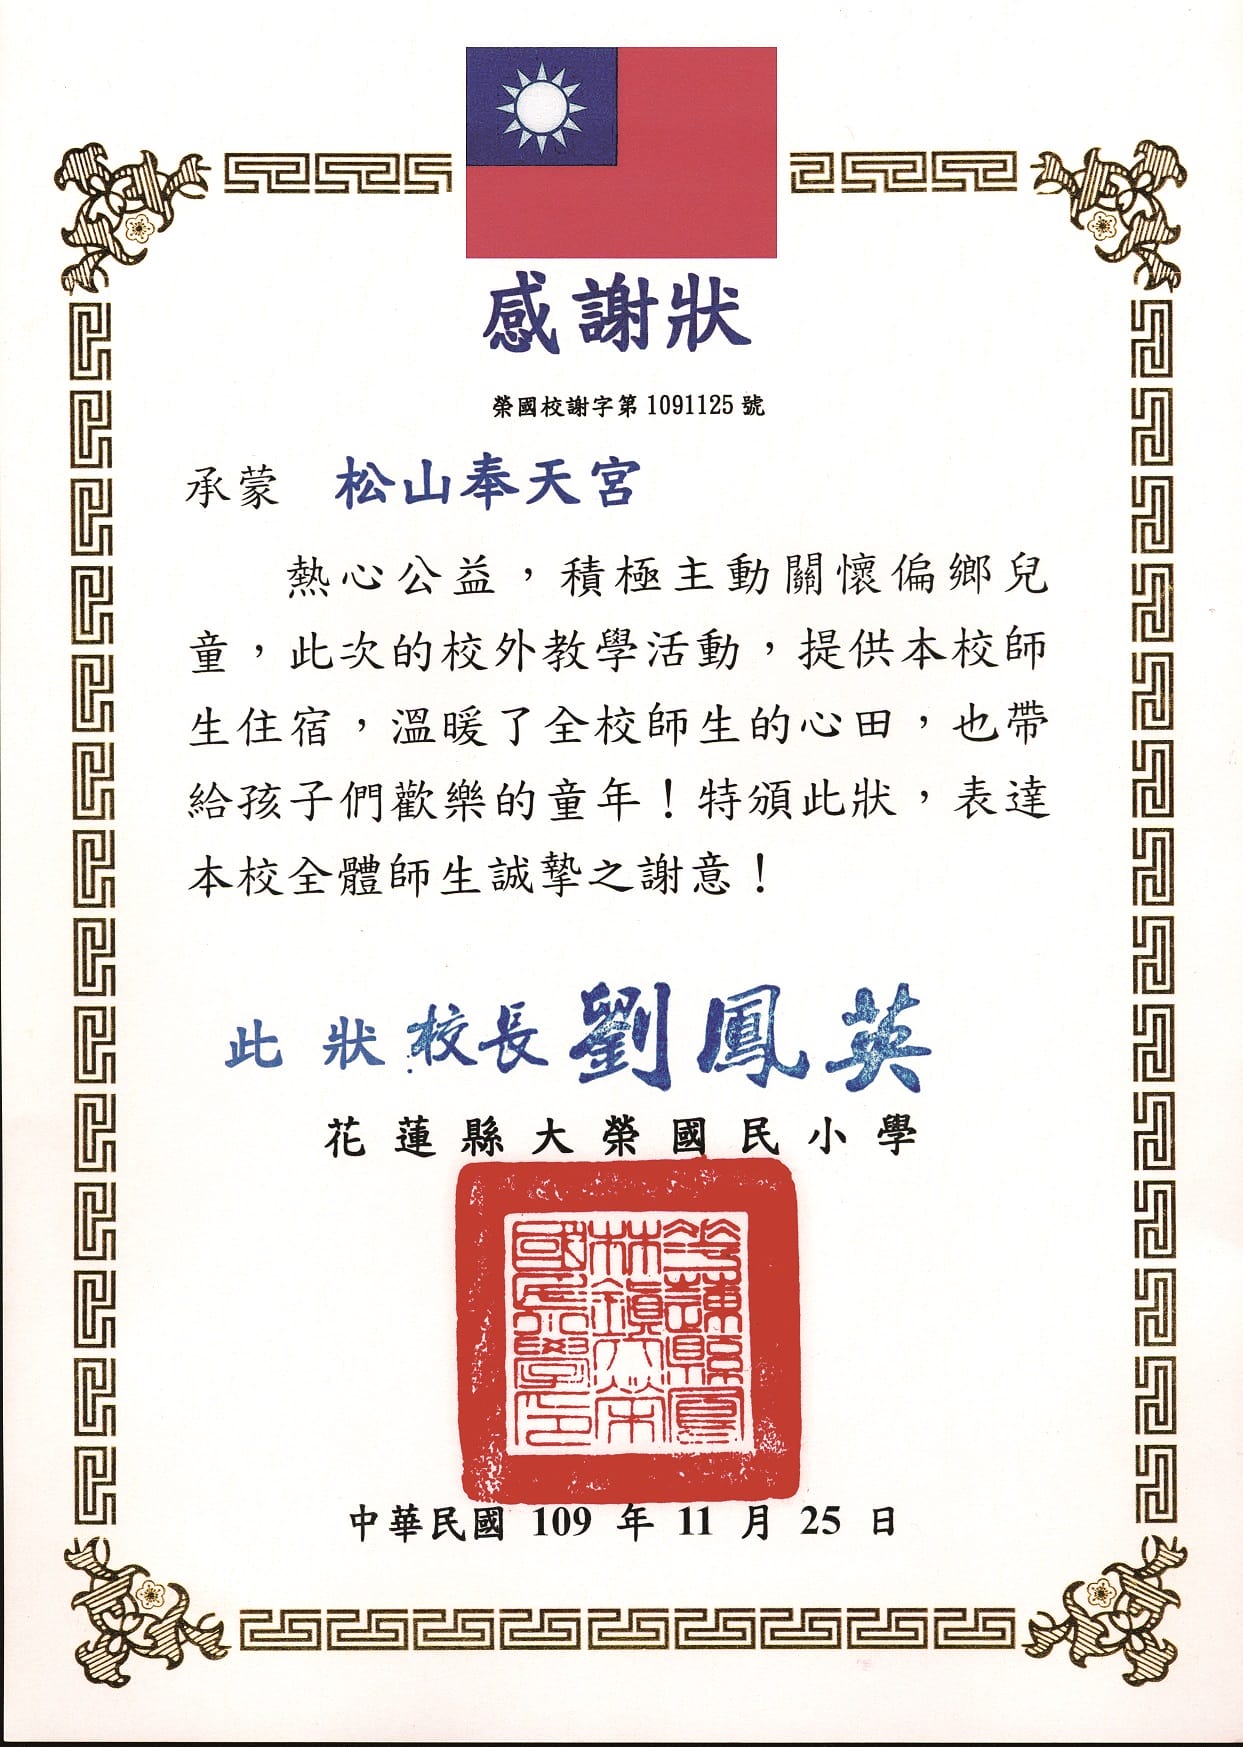 感謝狀
榮國校謝字第1091125號
承蒙 松山奉天宮
熱心公益，積極主動關懷偏鄉兒
童，此次的校外教學活動，提供本校師
生住宿，溫暖了全校師生的心田，也帶
給孩子們歡樂的童年！特頒此狀，表達
本校全體師生誠摯之謝意！
此狀 校長 劉鳳英
花蓮縣大榮國民小學
中華民國 109 年 11 月 25 日